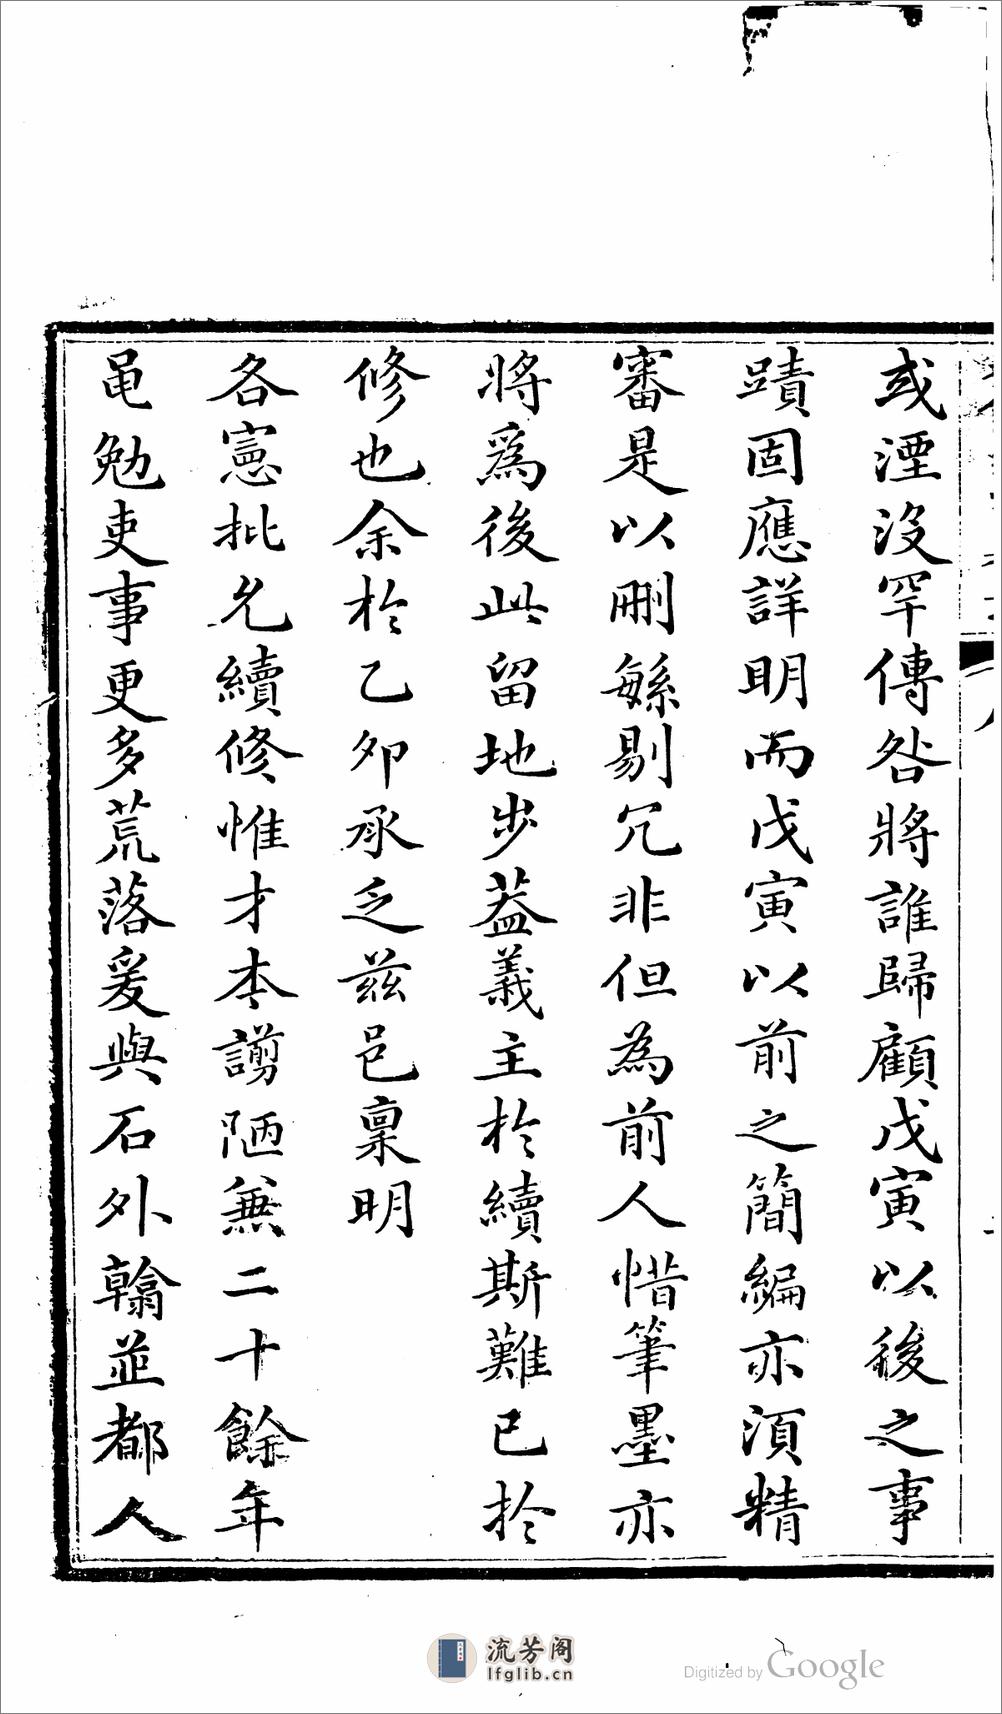 或湮沒罕傳咎將誰歸顧戊寅以後之事
蹟固應詳明而戊寅以前之簡編亦須精
審是以刪繁剔冗非但為前人惜筆墨亦
將爲後此留地步葢義主於續斯難已於
修也余於乙卯承乏兹邑稟明
各憲批允續修惟才本謭陋兼二十餘年
黽勉吏事更多荒落爰與石外翰並都人
流芳阁
lfglib.cn
Digitized by Google